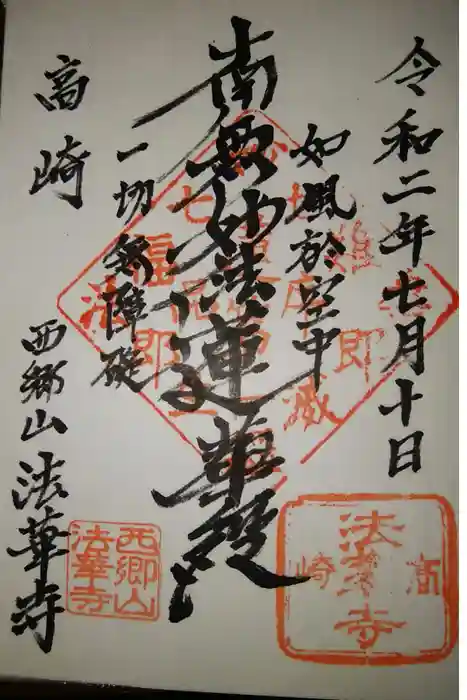 令和二年七月十日
如風於空中
南無妙法蓮華経
一切無障礙
高崎
西郷山 法華寺
高崎
法華寺
西郷山
法華寺